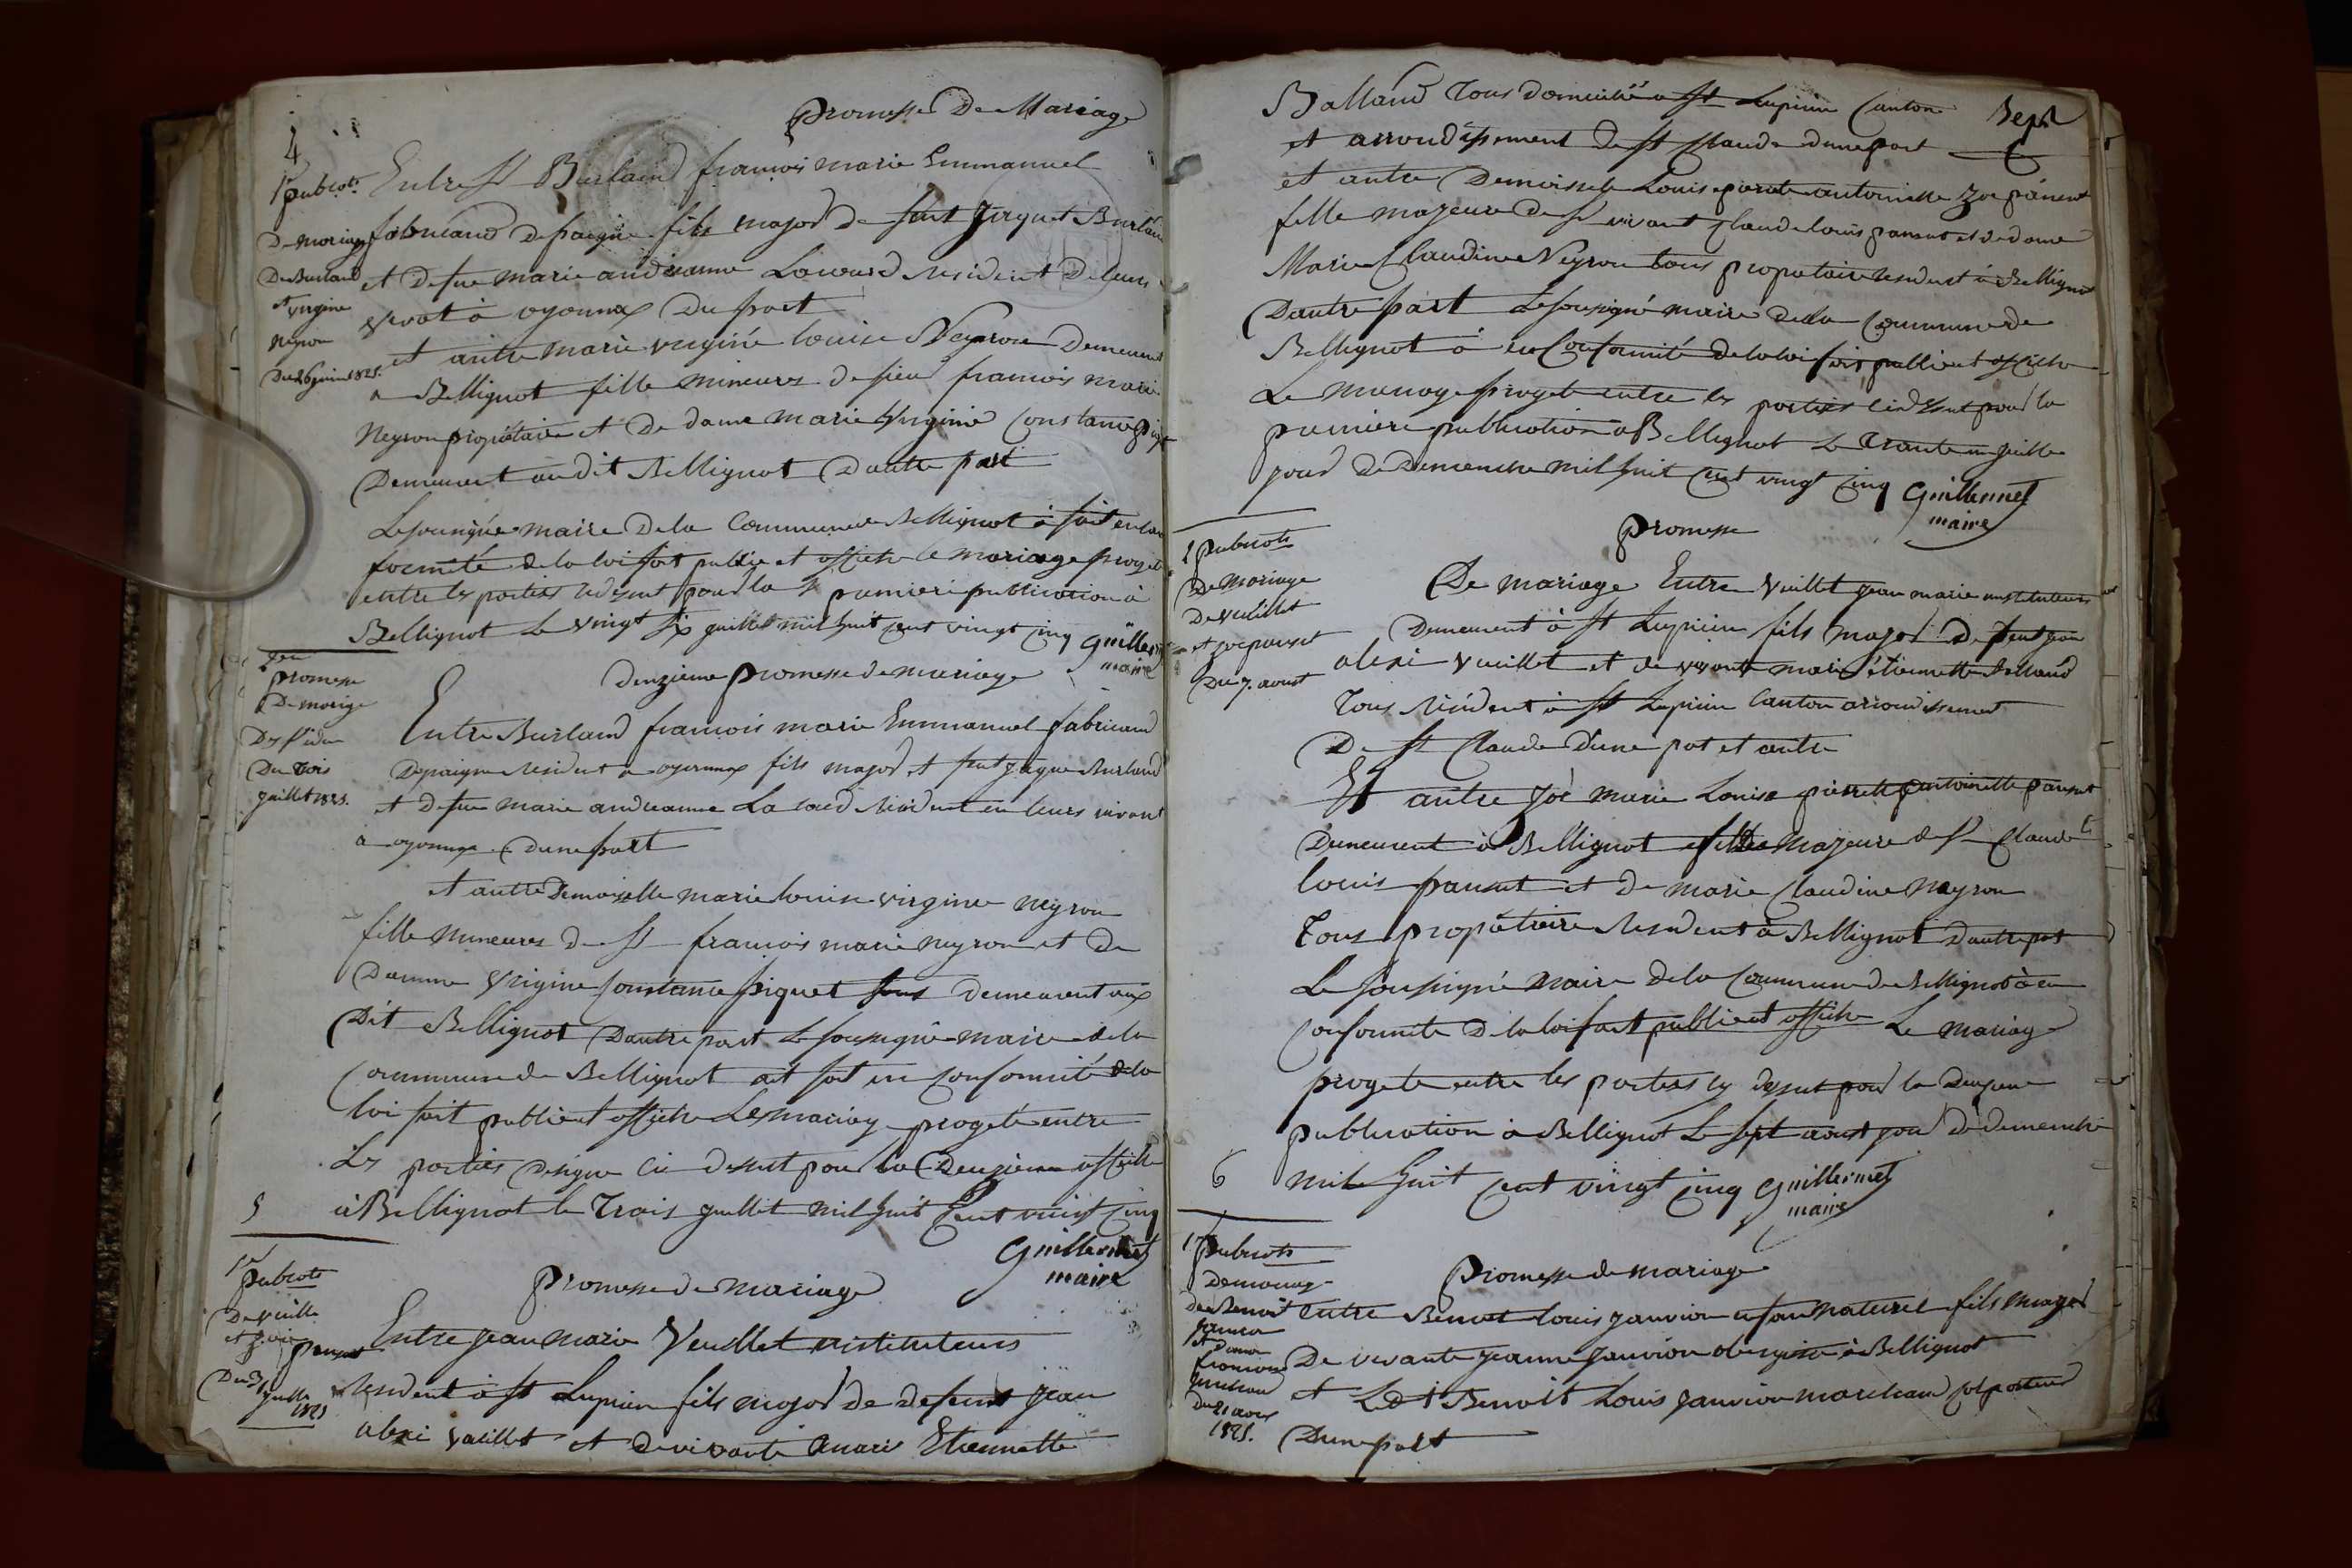 4
1re publicat.
De mariage
De Burland
et virgine
Neyron
Du 26 juin 1825.
Promesse De Mariage
Entre St Burland françois marie Emmanuel
fabricand de paigne fils major de feut Jaque Burland
et De fue marie andreanne Lacourd resident De leurs
vivat à oyonnax Du part
et autre marie virginé louise Neyron Demeurent
a Bellignot fille mineures de sieur francois marie
Neyron propiétaire et De dame marie Virginie Constance
Demeurent au dit Bellignot D'autre part
Le sousigné maire De la Commune Bellignot à fait en con
formité de la loi fait publie et affiche le mariage projeté
entre les parties ci desut pour la premiere publication à
Bellignot Le vingt six juillet mil huit cent vingt cinq Guillermet
maire
promesse
De mariage
Du trois
juillet 1825.
Deuzieme promesse de mariage
Entre Burland francois marie Emmanuel fabricand
De paigne resident a oyonnax fils major et feut jaque Burland
et De fue marie andreanne La courd resident en leurs vivant
a oyonnax D'une part
et autre Demoiselle marie louise virgine neyron
fille mineures De St francois marie neyron et De
Damme Virgine Constance piquet tous demeurent aux
Dit Bellignot D'autre part Le sousigné maire de la
Commune de Bellignot ait fait en Conformité de la
loi fait publie et affiche Le mariag progeté entre
Les parties designe ci desut pour la Deuzieme affiche
à Bellignot le Trois juillet mil huit Cent vingt cinq
Guillermet
maire
5
1re
publicat
De Vuillet
et
pansut
Du 31
juillet
1825
Promesse de mariage
Entre jean marie Vuillet instituteurs
resident à St Lupicin fils major de defunt jean
alexi vuillet et de vivante marie Etiennette
Balland Tous domicilié a St Lupicin Canton
Sept
et arrondissement de St Claude d'une part
et autre Demoiselle Louise antoinette Zoe pansut
fille majeure de St vivant Claude louis pansut et de dame
Marie Claudine Neyron tous propietaire resident à Bellignot
D'autre part Le sousigné maire de la Commune de
Bellignot à en Conformité de la loi fait publie et affiche
Le mariage progeté entre les parties ci desut pour la
premiere publication a Bellignot Le trante un juillet
jour De Demenche mil huit cent vingt Cinq Guillermet
maire
2 publicat
De mariage
De Vuillet
et zoe pansut
Du 7. aoust
Promesse
De mariage Entre Vuillet jean marie instituteurs
Demeurent à St Lupicin fils major De feut jean
alexi Vuillet et de vivante marie étiennette Balland
Tous Résident à St Lupicin Canton arrondissement
De St Claude D'une pat et autre
Et autre Joé marie Louise pierrette antoinette pansut
Demeurent à Bellignot fille majeure de St Claude
louis pansut et De marie Claudine Neyron
Tous propiétaire resident à Bellignot D'autre pat
Le sousigné maire de la Commune de Bellignot à en
Conformite De la loi fait publie et affiche Le mariag
progete entre les parties cy desut pour la Deuzieme
publication à Bellignot Le sept aoust jour de demenche
mil huit Cent vingt Cinq Guillermet
maire
6
1re
publicat
De mariag
de Benoit
janvion
et
Du 21 aoust
1825.
Promesse de mariage
Entre Benoit louis janvion enfan naturel fils major
De vivante jeanne janvion à Bellignot
et Ledt Benoit Louis janvion marchand Colporteur
D'une part